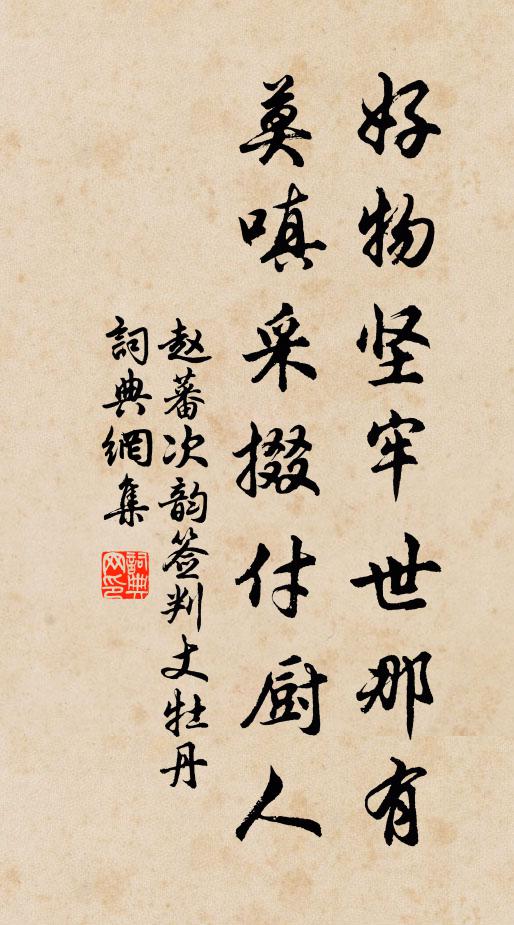 好物坚牢世那有
莫嗔采掇付厨人
赵蕃次韵签判丈牡丹
詞典網集
詞典网印